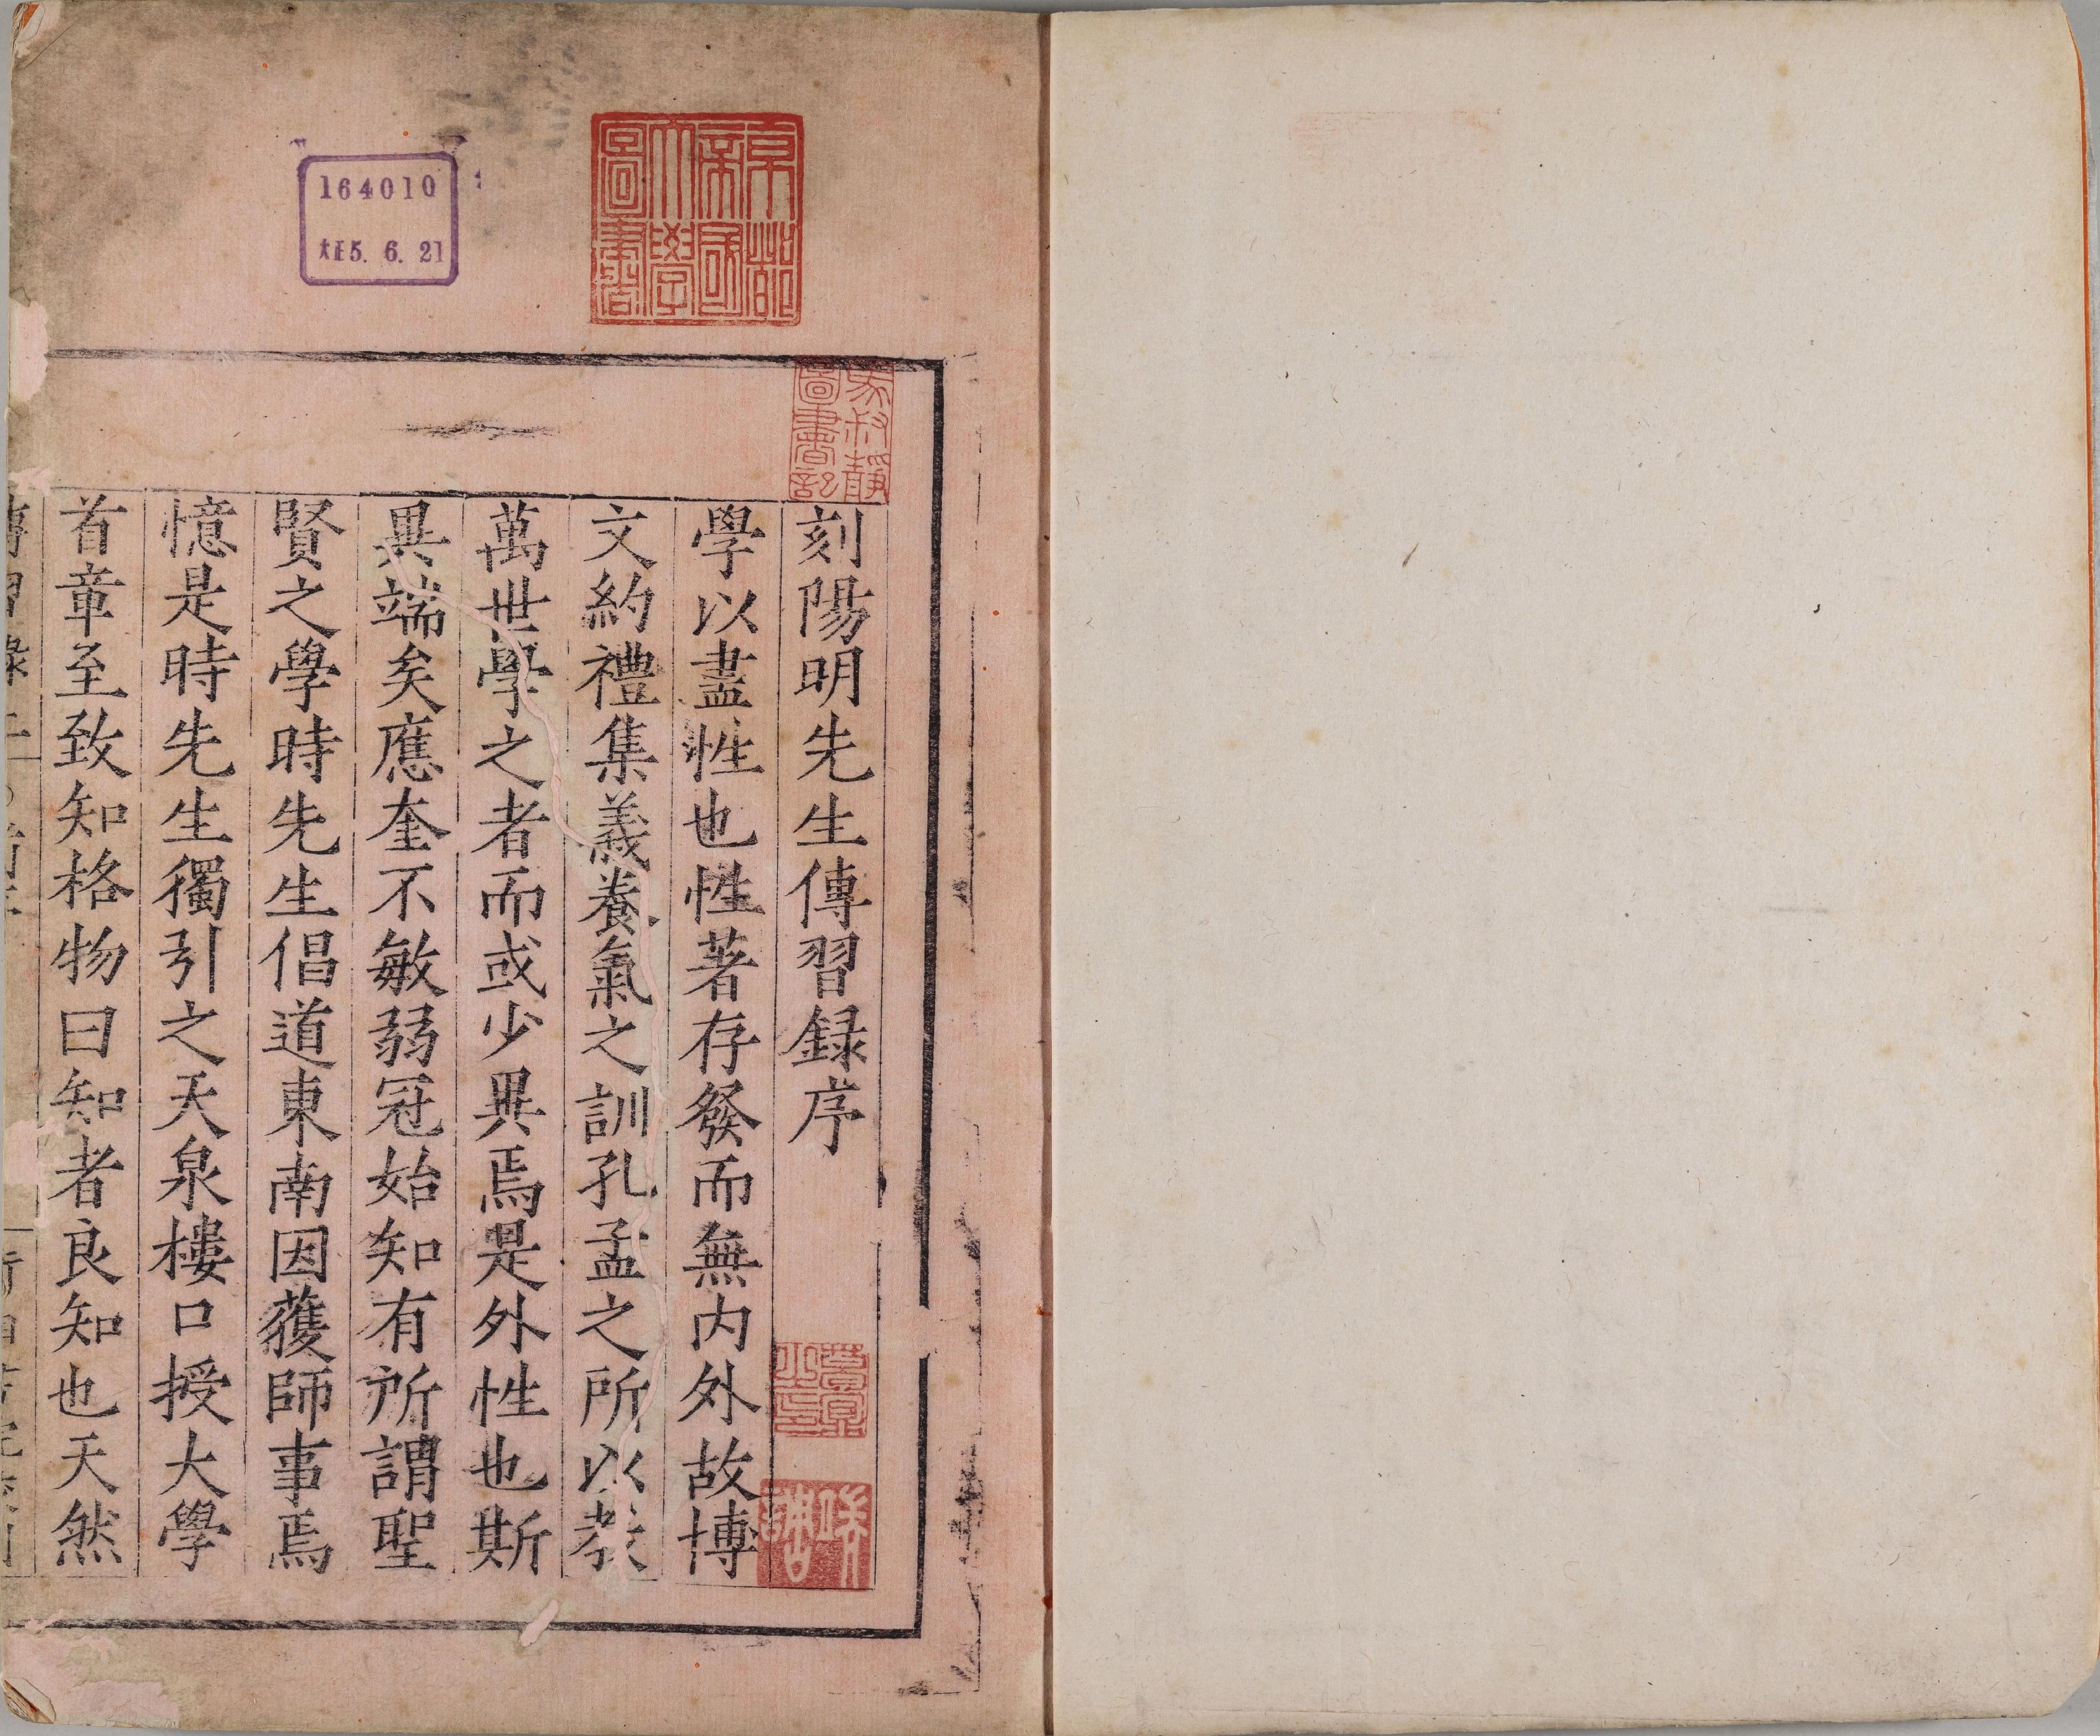 京都
帝國
大學
圖書
164010
大正5. 6. 21
圖書記
刻陽明先生傳習録序
學以盡性也性著存發而無内外故博
文約禮集義養氣之訓孔孟之所以教
萬世學之者而或少異焉是外性也斯
異端矣應奎不敏弱冠始知有所謂聖
賢之學時先生倡道東南因獲師事焉
憶是時先生獨引之天泉樓口授大學
首章至致知格物曰知者良知也天然